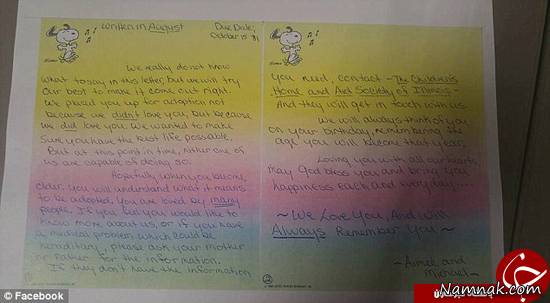 written in August
Due Date;
October 15 '81
We really do not know
what to say in this letter, but we will try
our best to make it come out right.
We placed you up for adoption not
because we didn't love you, but because
we did love you. We wanted to make
sure you have the best life possible.
But at this point in time, niether one of
us are capable of doing so.
Hopefully when you become
older, you will understand what it means
to be adopted. You are loved by many
people. If you feel you would like to
know more about us, or if you have
a medical problem which could be
hereditary, please ask your mother
or father for the information.
If they don't have the information
you need, contact - The Children's
Home and Aid Society of Illinois -
And they will get in touch with us.
We will always think of you
on your birthday, remembering the
age you will become that year.
Loving you with all our hearts,
may God bless you and bring you
happiness each and everyday....
~We Love You, And Will
Always Remember You ~
- Aimee and
Michael -
f Facebook
Namnak.com